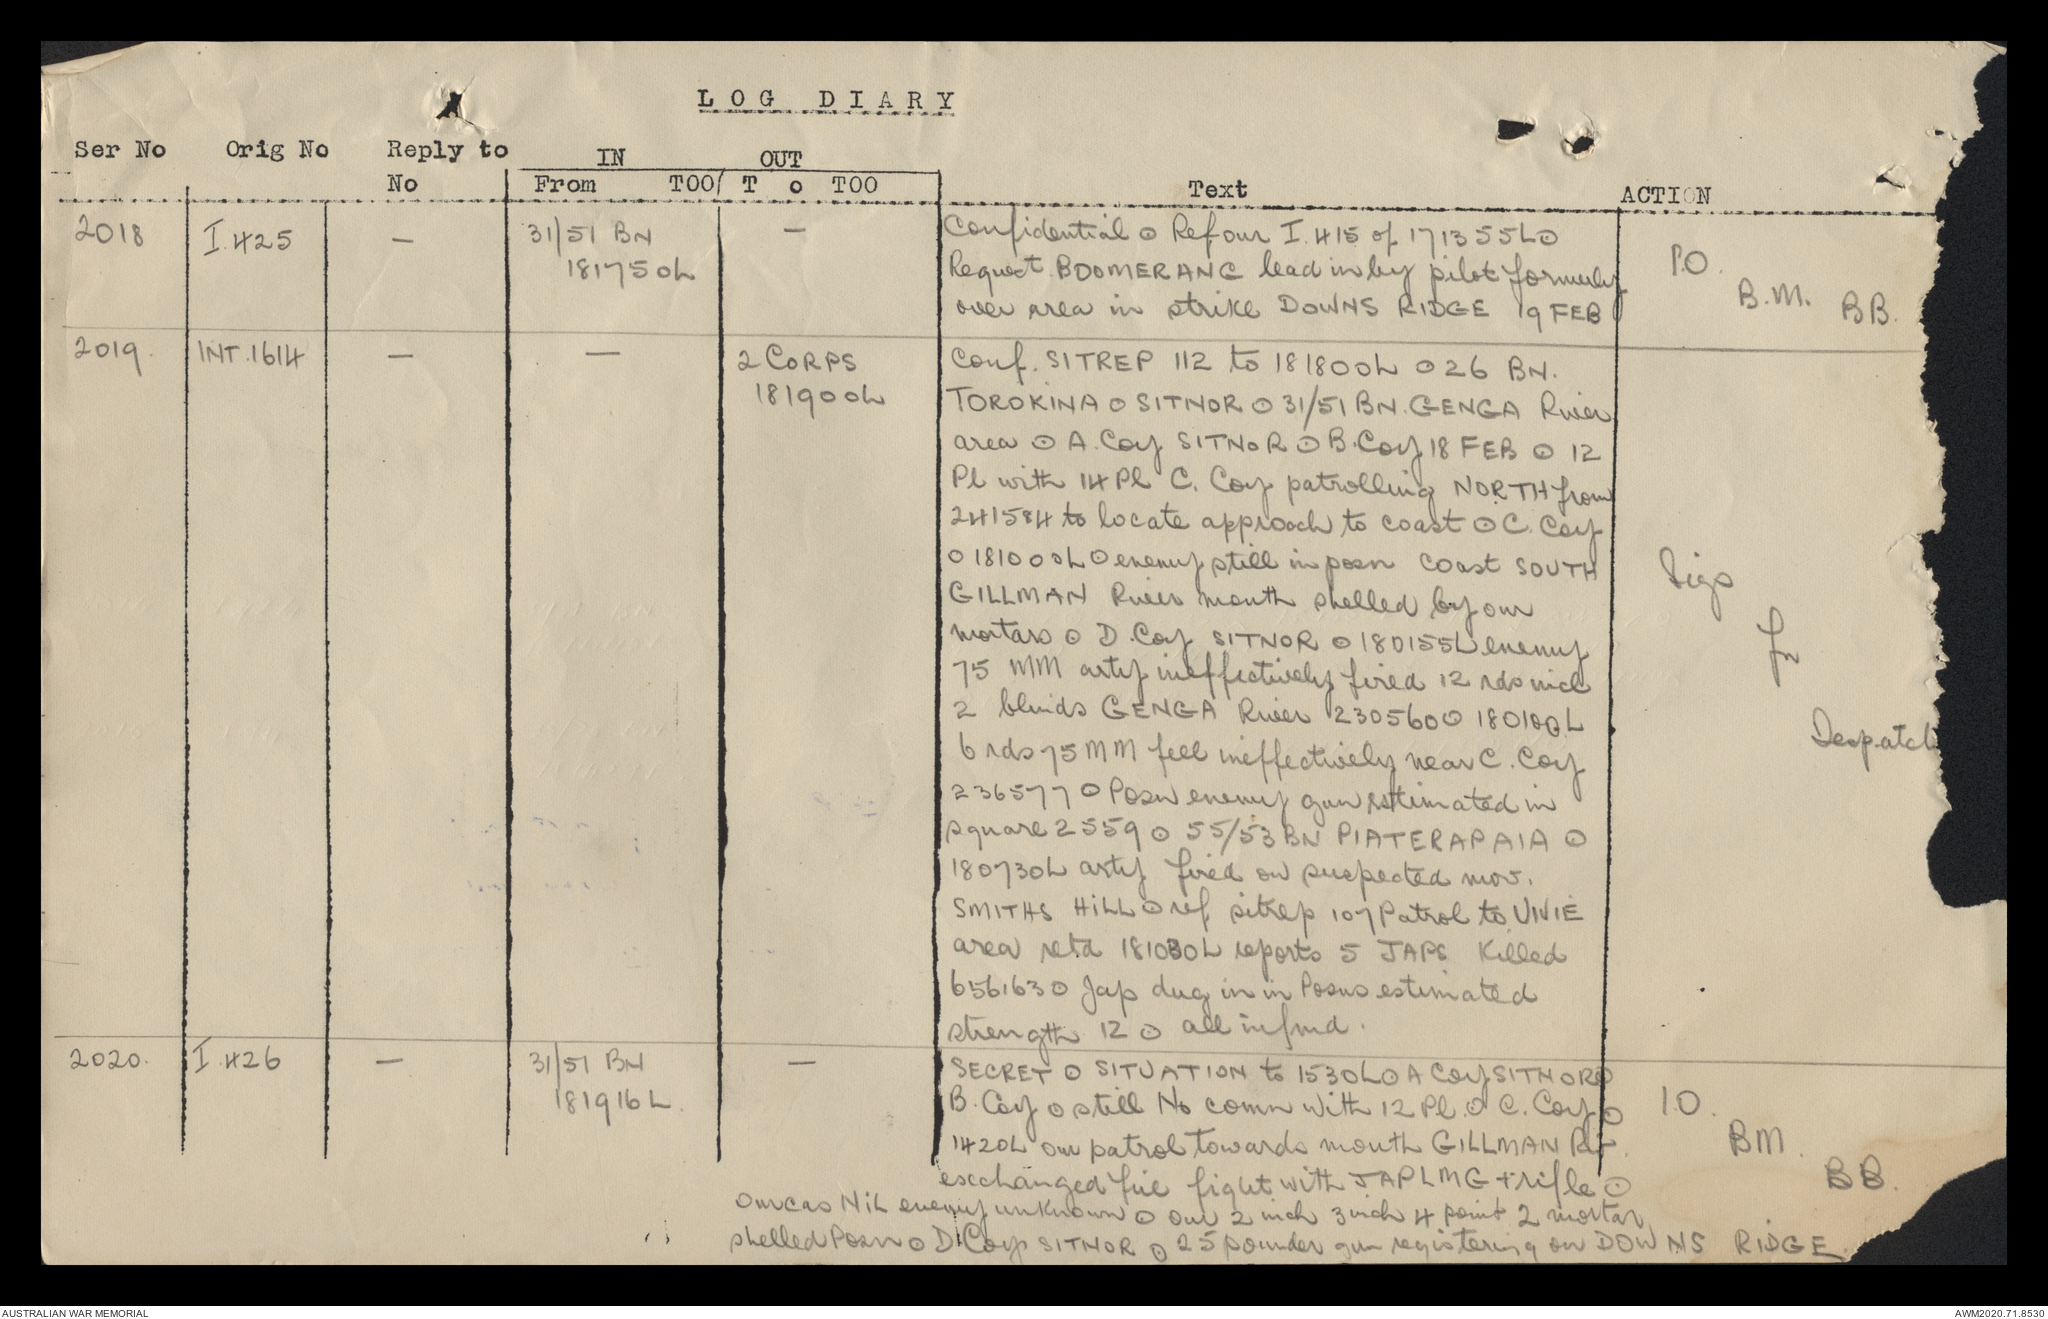 LOG DIARY
Ser No Orig No Reply to No IN From TOO OUT To TOO Text ACTION
2018 I.425 — 31/51 BN 181750L —
Confidential ⊙ Ref our I.415 of 171355L ⊙
Request BOOMERANG lead in by pilot formerly
over area in strike DOWNS RIDGE 19 FEB
I.O. B.M. BB.
2019. INT.1614 — — 2 CORPS 181900L
Conf. SITREP 112 to 181800L ⊙ 26 BN.
TOROKINA ⊙ SITNOR ⊙ 31/51 BN. GENGA River
area ⊙ A. Coy SITNOR ⊙ B. Coy 18 FEB ⊙ 12
Pl with 14 Pl C. Coy patrolling NORTH from
241584 to locate approach to coast ⊙ C. Coy
⊙ 181000L ⊙ enemy still in posn coast SOUTH
GILLMAN River mouth shelled by our
mortars ⊙ D. Coy SITNOR ⊙ 180155L enemy
75 MM arty ineffectively fired 12 rds incl
2 blinds GENGA River 230560 ⊙ 180100L
6 rds 75 MM fell ineffectively near C. Coy
236577 ⊙ Posn enemy gun estimated in
square 2559 ⊙ 55/53 BN PIATERAPAIA ⊙
180730L arty fired on suspected mov.
SMITHS HILL ⊙ ref sitrep 107 Patrol to VIVIE
area retd 181030L reports 5 JAPS Killed
656163 ⊙ Jap dug in in Posns estimated
strength 12 ⊙ all infmd.
Sigs
for
Despatch
2020. I.426 — 31/51 BN 181916L. —
SECRET ⊙ SITUATION to 1530L ⊙ A Coy SITNOR ⊙
B. Coy ⊙ still No comn with 12 Pl. ⊙ C. Coy ⊙
1420L our patrol towards mouth GILLMAN Rr.
exchanged fire fight with JAP LMG + rifle ⊙
our cas NIL enemy unknown ⊙ our 2 inch 3 inch 4 point 2 mortar
shelled Posn ⊙ D Coy SITNOR ⊙ 25 pounder gun registering on DOWNS RIDGE
I.O. BM. BB.
AUSTRALIAN WAR MEMORIAL AWM2020.71.8530